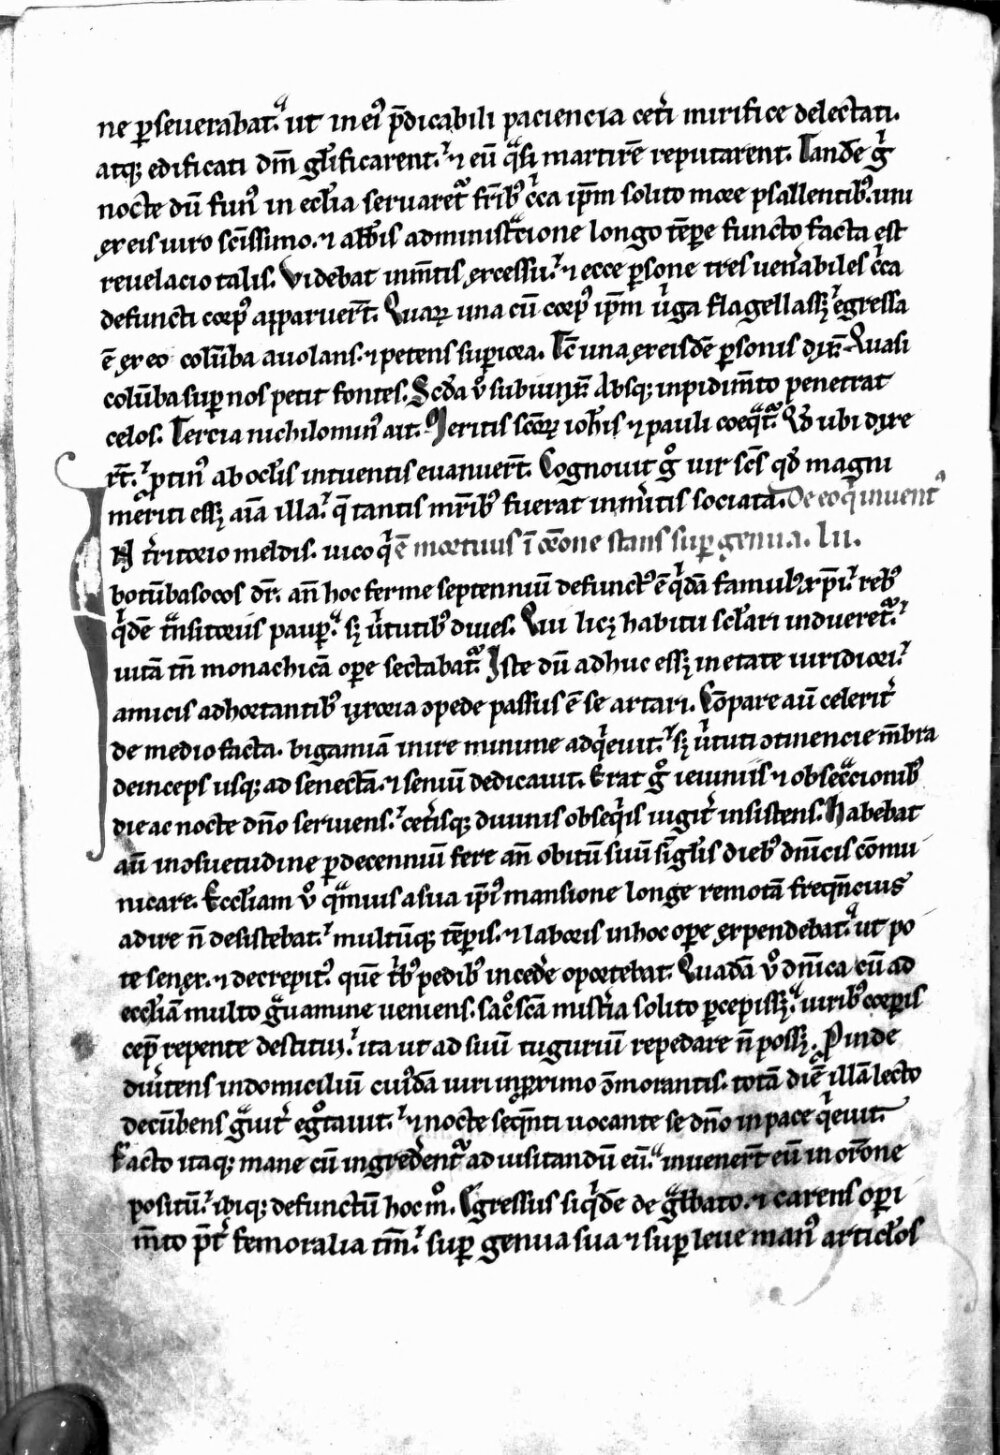 ne p̲seuerabat᷑. ut in ei᷒ p̄dicabili paciencia cet̾i mirifice delectati.
atq; edificati dm̄ gl̾ificarent.᷑ ⁊ eū qͣsi martirē reputarent. Tandē gͥ
nocte dū fun᷒ in eccl̾ia seruaret᷑ fr̄ib᷒ cͥca ip̄m solito more psallentib᷒. uni
ex eis uiro sc̄issimo. ⁊ abb̄is administͣcione longo tēp̲e functo facta est
reuelacio talis. Videbat in mn̄tis excessu.᷑ ⁊ ecce p̲sone tres uen̾abiles cͥca
defuncti corp᷒ apparuer̄t. Quaꝝ una cū corp᷒ ip̄m uͥga flagellassꝫ egressa
ē ex eo colūba auolans. ⁊ petens sup̲iora. Tc̄ una ex eisdē p̲sonis dix̄. Quasi
colūba sup̲ nos petit fontes. Scd̾a u̾ subiunx̄. Absq; inpedim̄to penetrat
celos. Tercia nichilomin᷒ ait. Meritis sc̄oꝝ ioh̾is ⁊ pauli coeq̄t᷑. Qd̾ ubi dixe
rt̄.᷑ p̲tin᷒ ab ocl̾is intuentis euanuer̄t. Cognouit gͦ uir sc̄s qd̾ magni
meriti essꝫ aīa illa.᷑ q̄ tantis mr̄ib᷒ fuerat in m̾itis sociata. De eo qͥ inuent᷒
IN t̾ritorio meldis. uico qͥ ē mortuus ī or̄one stans sup̲ genua. lii.
botūbasocos dr̄. an̄ hoc ferme septenniū defunct᷒ ē qͥdā famul᷒ xp̄i.᷑ reb᷒
qͥdē t̄nsitoriis paup̲.᷑ sꝫ uͥtutib᷒ diues. Qui licꝫ habitu scl̾ari indueret᷑.᷑
uitā tn̄ monachicā op̲e sectabat᷑. Iste dū adhuc essꝫ in etate iuridiori.᷑
amicis adhortantib᷒ uxoria ɔpede passus ē se artari. Cōpare aū celerit̾
de medio facta. bigamiā inire minime adqͥeuit.᷑ sꝫ uͥtuti ɔtinencie m̄bra
deinceps usq; ad senectā. ⁊ seniū dedicauit. Erat gͦ ieiuniis ⁊ obsecͣcionib᷒
die ac nocte dn̄o seruiens.᷑ cet̾isq; diuinis obseqͥis iugit̾ insistens. Habebat
aū in ɔsuetudine p̲ decenniū fere an̄ obitū suū sīgl̾is dieb᷒ dn̄icis cōmu
nicare. Eccl̾iam u̾ qͣmuis a sua ip̄i᷒ mansione longe remotā freqn̄cius
adire n̄ desistebat.᷑ multūq; tēp̲is. ⁊ laboris in hoc op̲e expendebat᷑. ut po
te senex. ⁊ decrepit᷒ quē t̾b᷒ pedib᷒ inced̾e oportebat. Quadā u̾ dn̄ica cū ad
eccl̾iā multo gͣuamine ueniens. sacͦsc̄a mist̾ia solito p̲cepissꝫ.᷑ uirib᷒ corp̲is
cep̄ repente destitui.᷑ ita ut ad suū tuguriū repedare n̄ possꝫ. Proinde
diu̾tens in domiciliū cui᷒dā uiri in p̲ximo ɔmorantis. totā diē illā lecto
decūbens gͣuit̾ egͦtauit.᷑ ⁊ nocte seqn̄ti uocante se dn̄o in pace qͥeuit.
Facto itaq; mane cū ingredēnt᷑ ad uisitandū eū.᷑ inuener̄t eū in or̄one
positū.᷑ ibiq; defunctū hoc mͦ. Egressus siqͥdē de gͣbbato. ⁊ carens op̲i
m̄to p̄t̾ femoralia tm̄.᷑ sup̲ genua sua ⁊ sup̲ leue man᷒ articl̾os